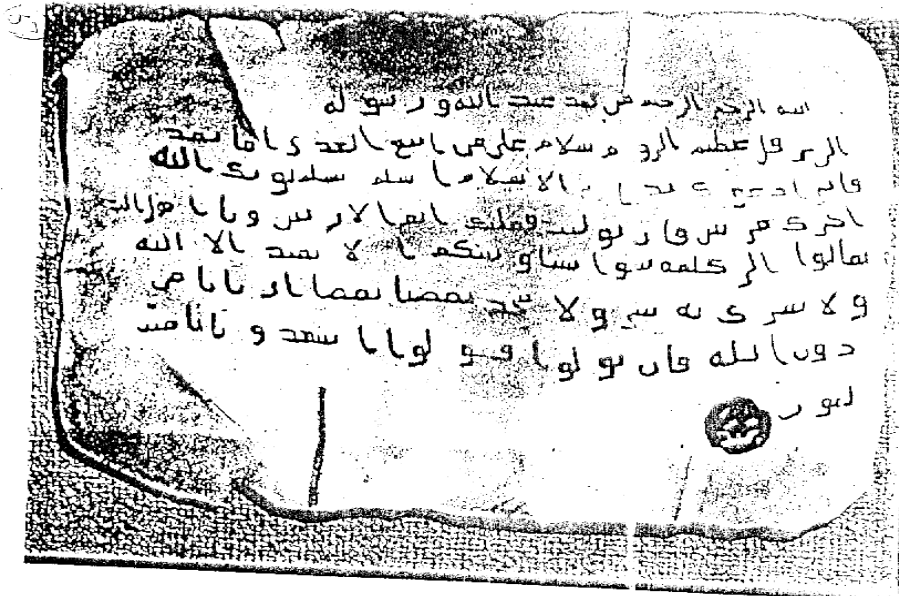 الله الرحمن الرحيم من محمد عبد الله ورسوله
الى هرقل عظيم الروم سلام على من اتبع الهدى اما بعد
فانى ادعوك الاسلام اسلم تسلم يؤتك الله
اجرك مرتين فان توليت فعليك اثم الاريسين ويا اهل الكتب
تعالوا الى كلمة سوا بيننا وبينكم الا نعبد الا الله
ولا نشرك به شيا ولا يتخذ بعضنا بعضا اربابا من
دون الله فان تولوا فقولوا اشهدوا بانا مسلـ
ـمون